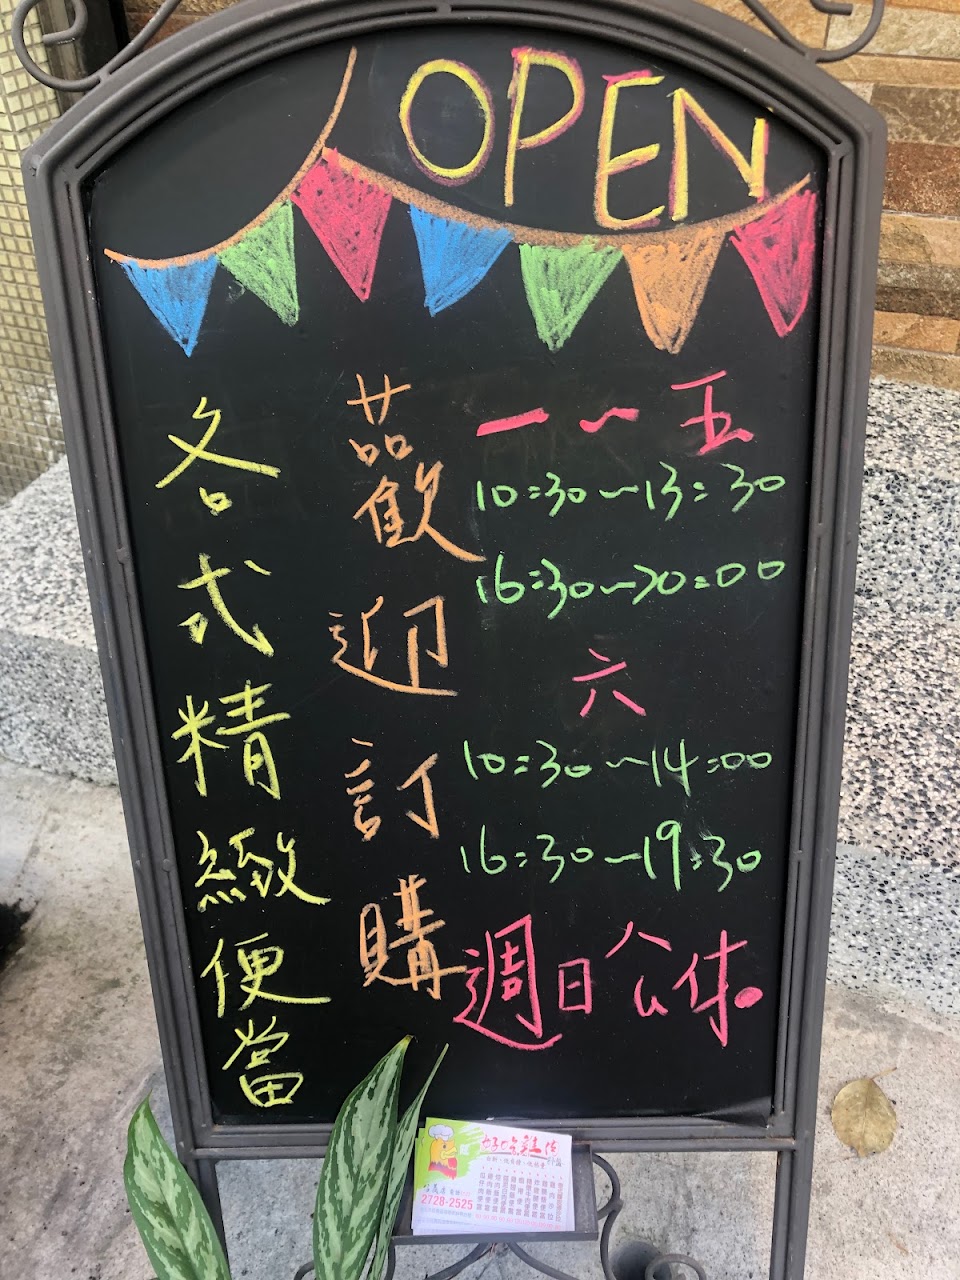 OPEN
一~五
10:30~13:30
16:30~20:00
六
10:30~14:00
16:30~19:30
週日公休。
歡迎訂購
各式精緻便當
2728-2525